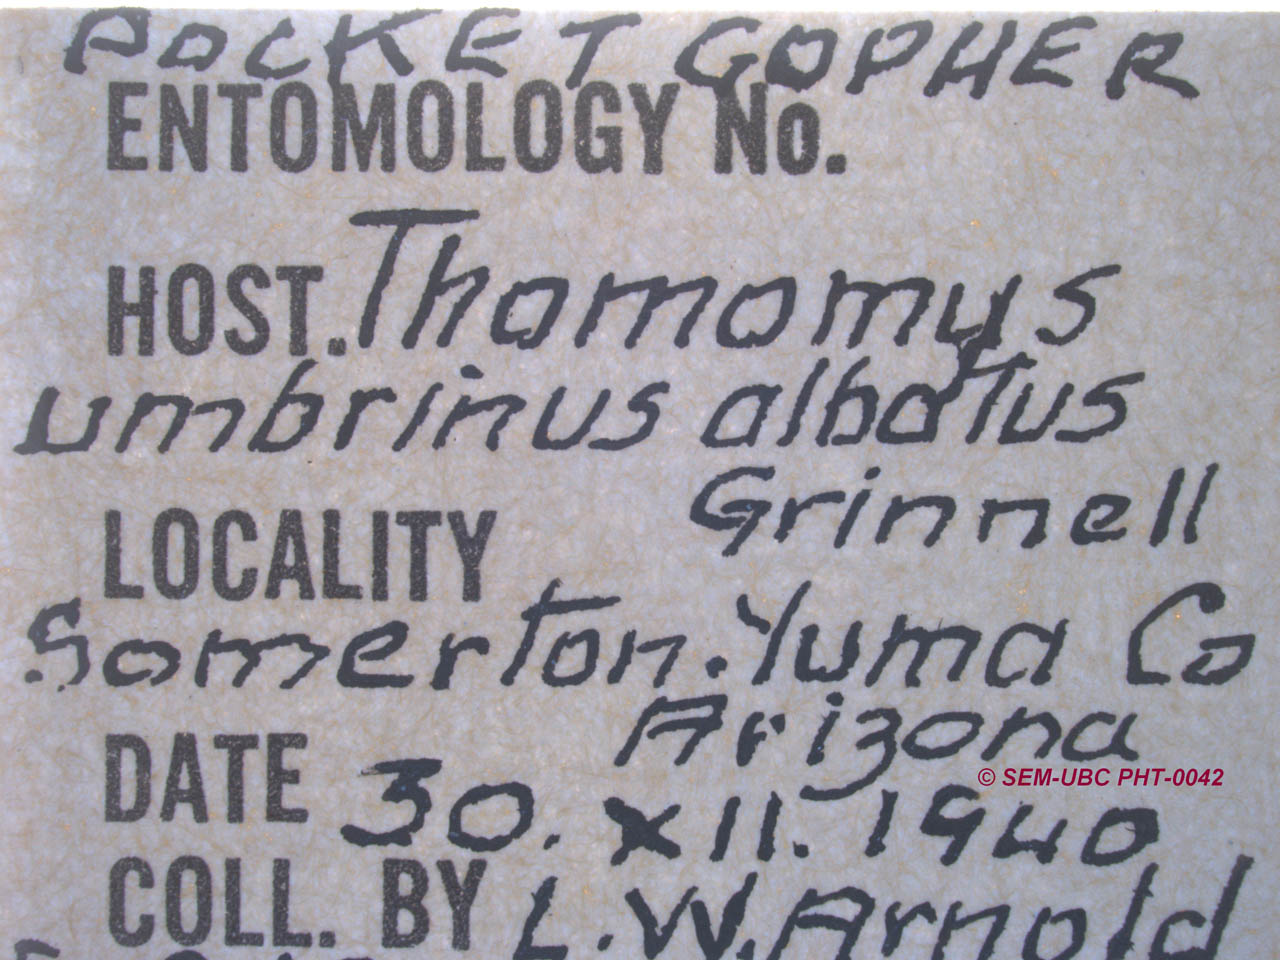 POCKET GOPHER
ENTOMOLOGY No.
HOST. Thomomys
umbrinus albatus
Grinnell
LOCALITY
Somerton. Yuma Co
Arizona
© SEM-UBC PHT-0042
DATE 30. XII. 1940
COLL. BY L. W. Arnold